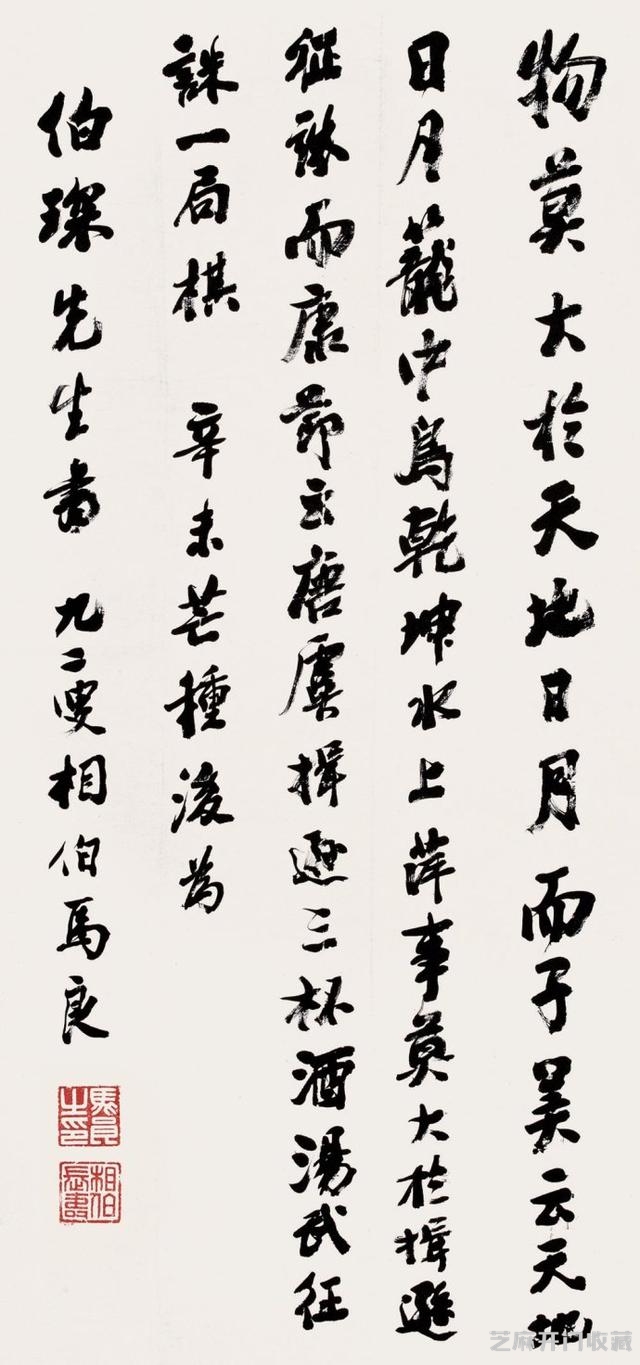 物莫大於天地日月而子美云天地
日月籠中鳥乾坤水上萍事莫大於揖遜
征誅而康節云唐虞揖遜三杯酒湯武征
誅一局棋 辛未芒種後為
伯琛先生書 九二叟相伯馬良
馬良之印
相伯長壽
芝麻开门收藏